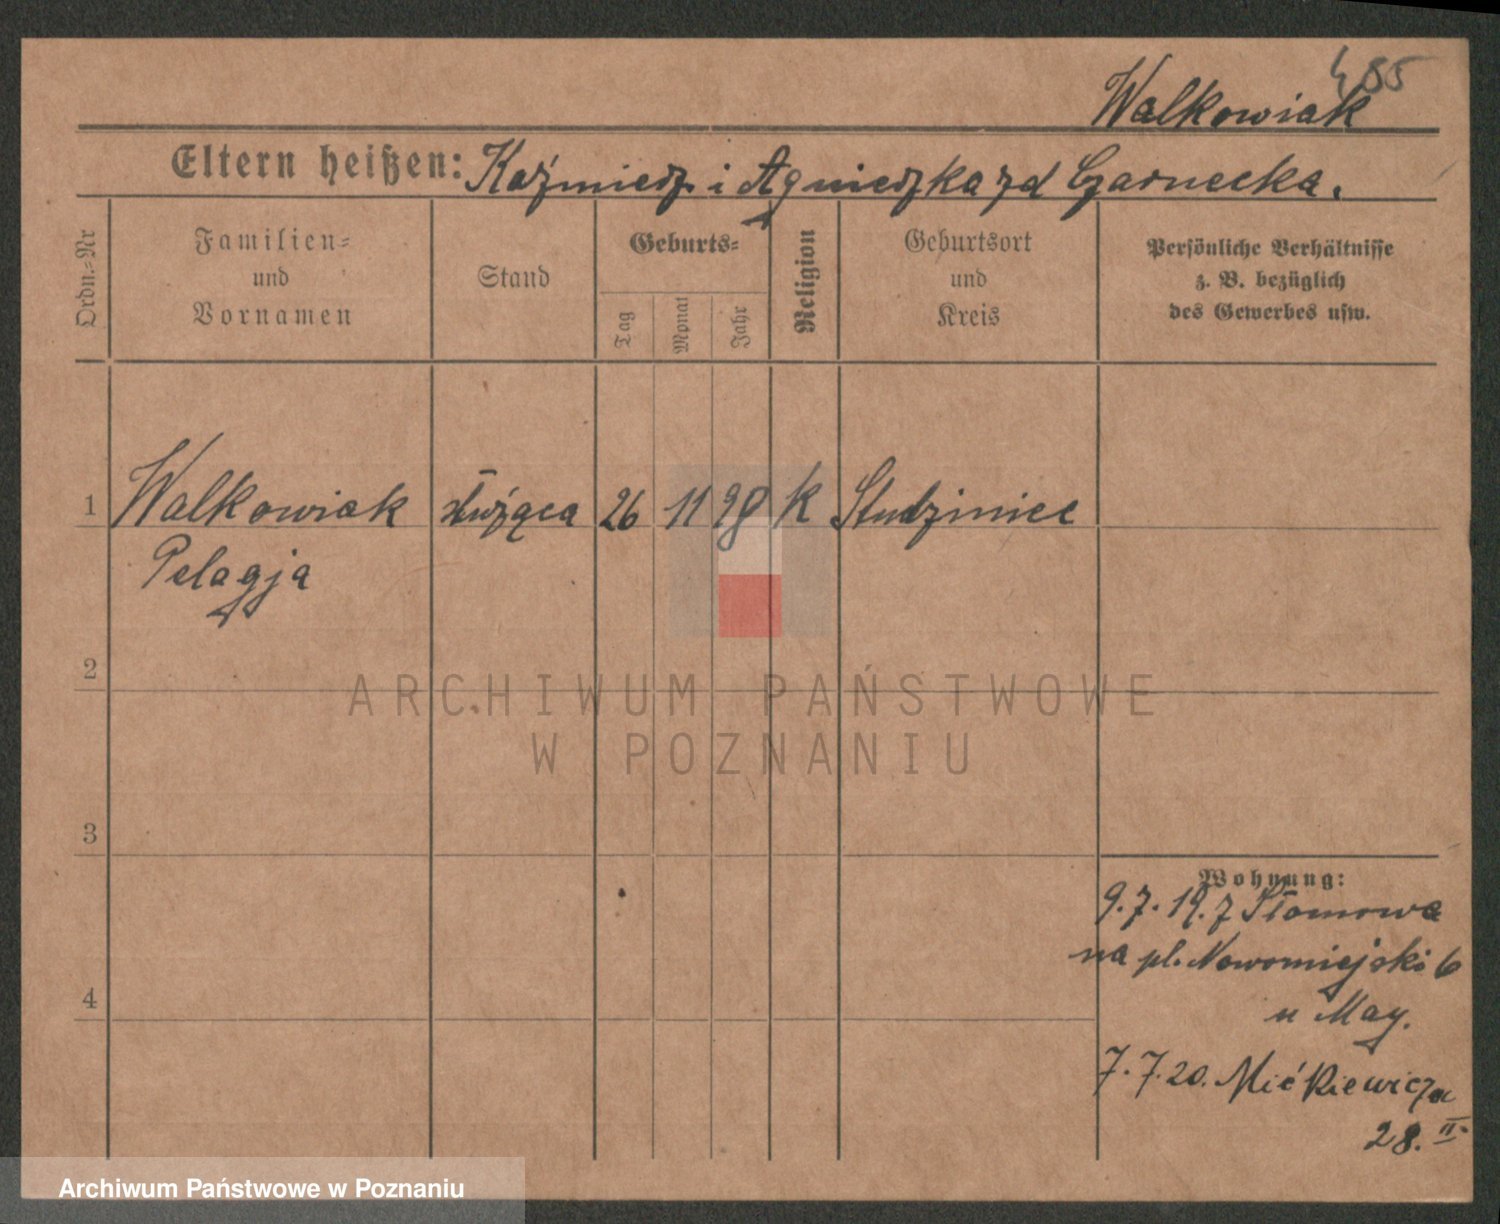 485
Walkowiak
Eltern heißen: Kaźmierz i Agnieszka zd Czarnecka.
Ordn.=Nr
Familien=
und
Vornamen
Stand
Geburts=
Tag
Monat
Jahr
Religion
Geburtsort
und
Kreis
Persönliche Verhältnisse
z. B. bezüglich
des Gewerbes usw.
1 Walkowiak służąca 26 11 98 k Studziniec
Pelagja
2
3
4
Wohnung:
9.7.19. z Słomowa
na pl. Nowomiejski 6
u May.
7.7.20. Mićkiewicza
28. II.
ARCHIWUM PAŃSTWOWE
W POZNANIU
Archiwum Państwowe w Poznaniu